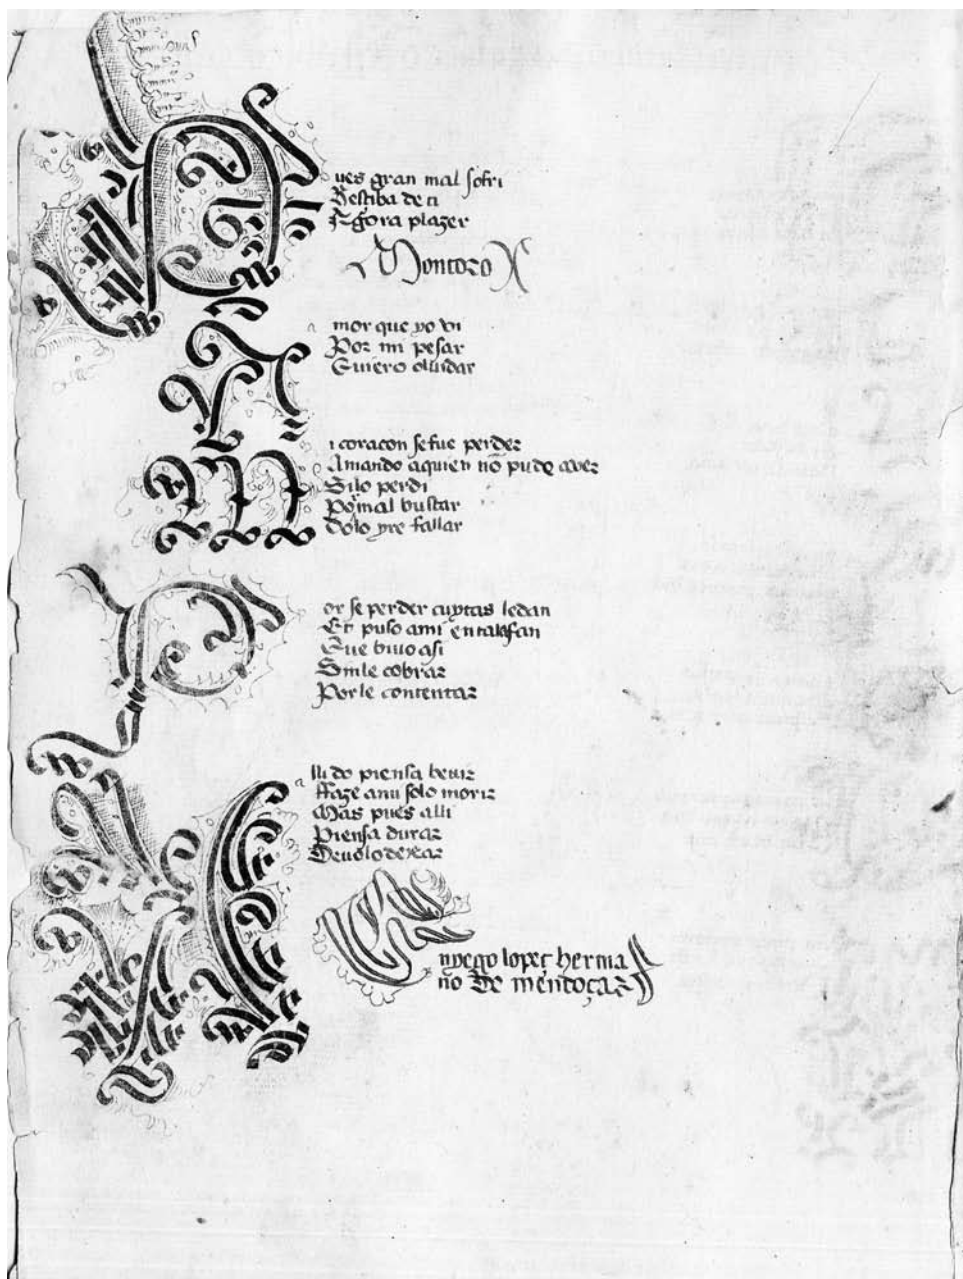 Pues gran mal sofri
Bestiba de ti
Agora plazer
Montoro
Amor que yo vi
Por mi pesar
Quiero olvidar
Mi coracon se fue perder
Amando aquien no pude aver
Si lo perdi
Por mal buscar
Do lo yre fallar
Por se perder cuytas ledan
Et puso ami en tal afan
Que bivo asi
Sin le cobrar
Por le contentar
Alli do piensa bevir
Faze ami solo morir
Mas pues alli
Piensa durar
Devolo dexar
nyego lopec herma
no de mendoçar